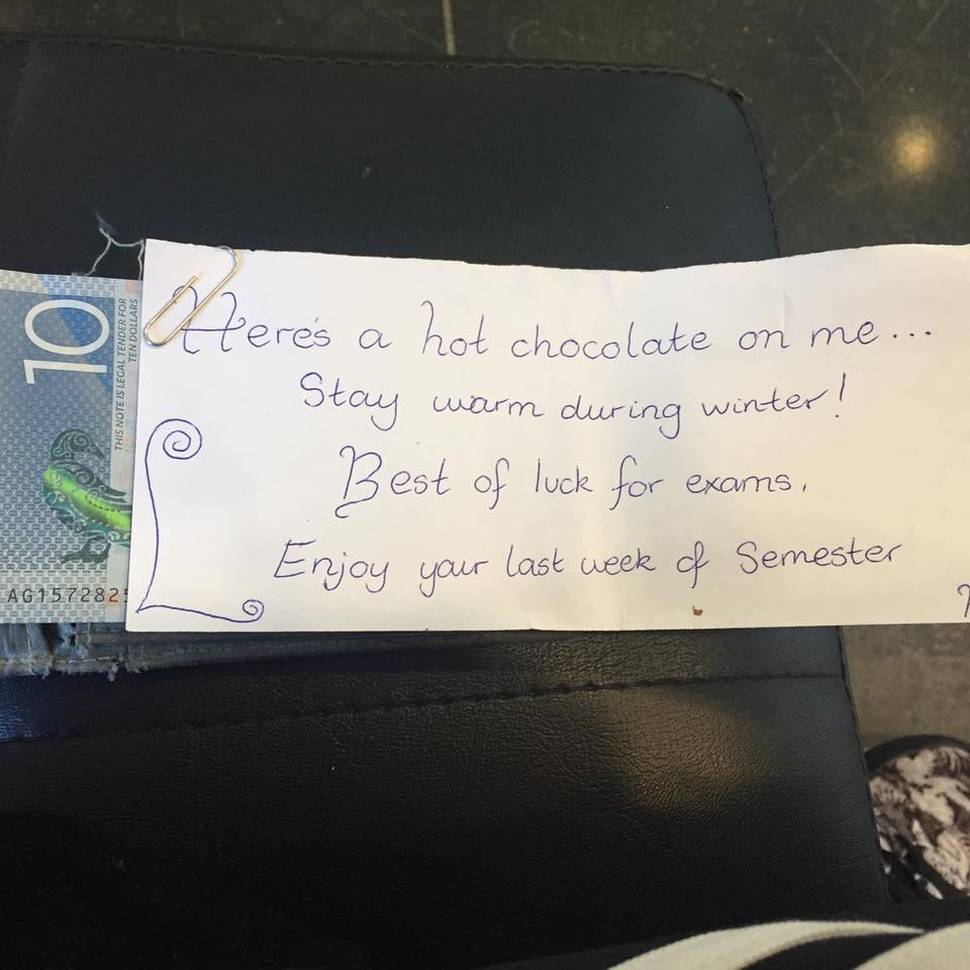 Here's a hot chocolate on me...
Stay warm during winter!
Best of luck for exams.
Enjoy your last week of Semester
10
THIS NOTE IS LEGAL TENDER FOR
TEN DOLLARS
AG157282